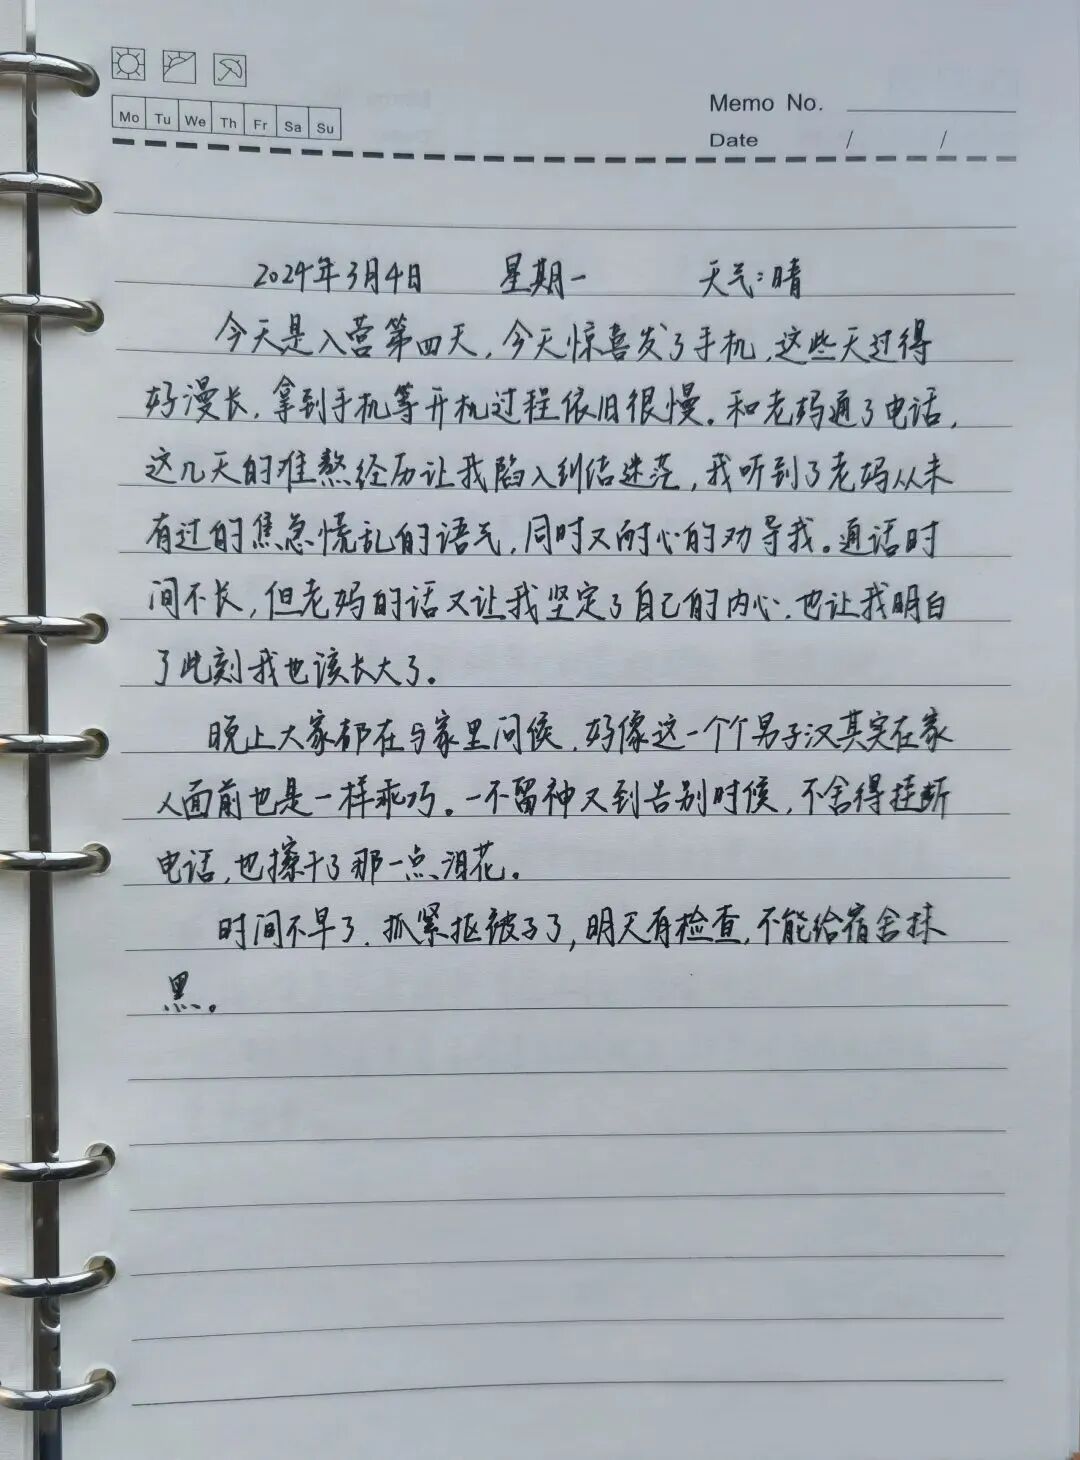 Mo Tu We Th Fr Sa Su
Memo No.
Date / /
2024年3月4日 星期一 天气:晴
今天是入营第四天,今天惊喜发了手机,这些天过得
好漫长,拿到手机等开机过程依旧很慢。和老妈通了电话,
这几天的难熬经历让我陷入纠结迷茫,我听到了老妈从未
有过的焦急慌乱的语气,同时又耐心的劝导我。通话时
间不长,但老妈的话又让我坚定了自己的内心.也让我明白
了此刻我也该长大了。
晚上大家都在与家里问候,好像这一个个男子汉其实在家
人面前也是一样乖巧。一不留神又到告别时候,不舍得挂断
电话,也擦干了那一点泪花。
时间不早了.抓紧抠被子了,明天有检查,不能给宿舍抹
黑。